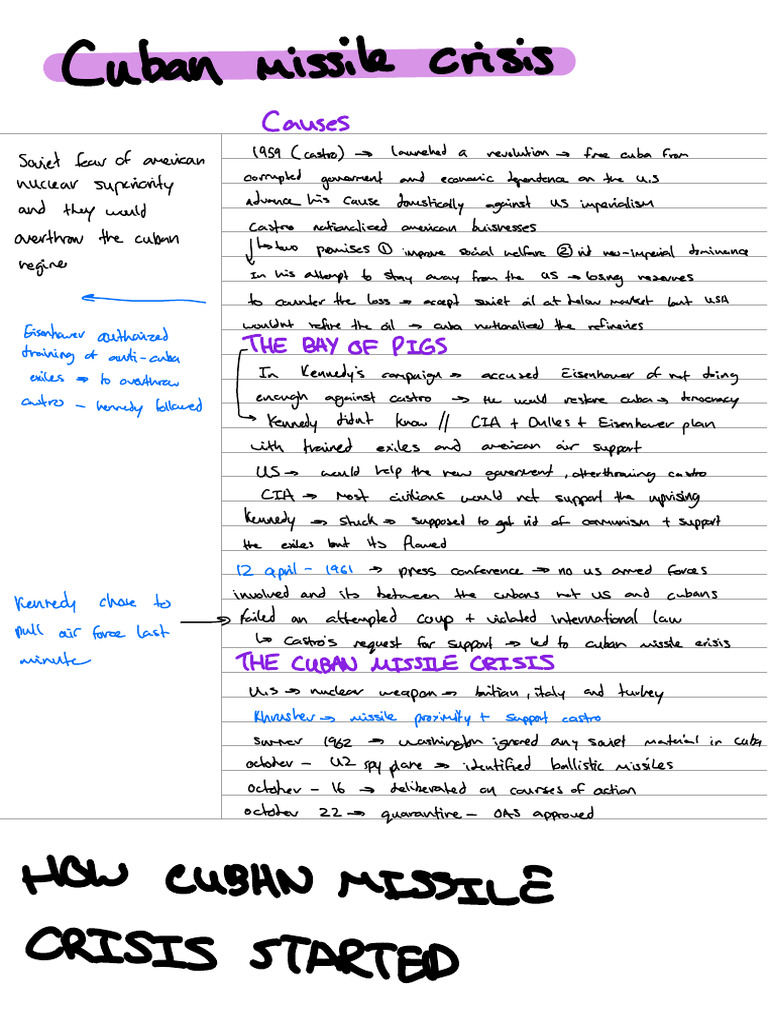 Cuban missile crisis
Causes
Soviet fear of american
nuclear superiority
and they would
overthrow the cuban
regime
1959 (castro) → launched a revolution → free cuba from
corrupted government and economic dependence on the U.S
advance his cause domestically against US imperialism
Castro nationalized american buisnesses
↳ two promises ① improve social welfare ② rid neo-imperial dominance
In his attempt to stay away from the US → losing reserves
to counter the loss → accept soviet oil at below market but USA
wouldnt refine the oil → cuba nationalized the refineries
Eisenhower authorized
training of anti-cuba
exiles → to overthraw
castro - kennedy followed
THE BAY OF PIGS
In Kennedy's campaign → accused Eisenhower of not doing
enough against castro → he would restore cuba → democracy
→ Kennedy didnt know // CIA + Dulles + Eisenhower plan
with trained exiles and american air support
US → would help the new goverment, after throwing castro
CIA → Most civilions would not support the uprising
Kennedy → stuck → supposed to get rid of communism + support
the exiles but its flawed
12 april - 1961 → press conference → no us armed forces
involved and its between the cubans not US and cubans
Kennedy chose to
pull air force last
minute
→ failed an attempted coup + violated international law
↳ Castro's request for support → led to cuban missile crisis
THE CUBAN MISSILE CRISIS
U.S → nuclear weapon → , italy and turkey
Khrushev → missile proximity + support castro
summer 1962 → washington ignored any soviet material in cuba
october - U2 spy plane → identified ballistic missiles
october - 16 → deliberated on courses of action
october 22 → quarantine - OAS approved
HOW CUBAN MISSILE
CRISIS STARTED